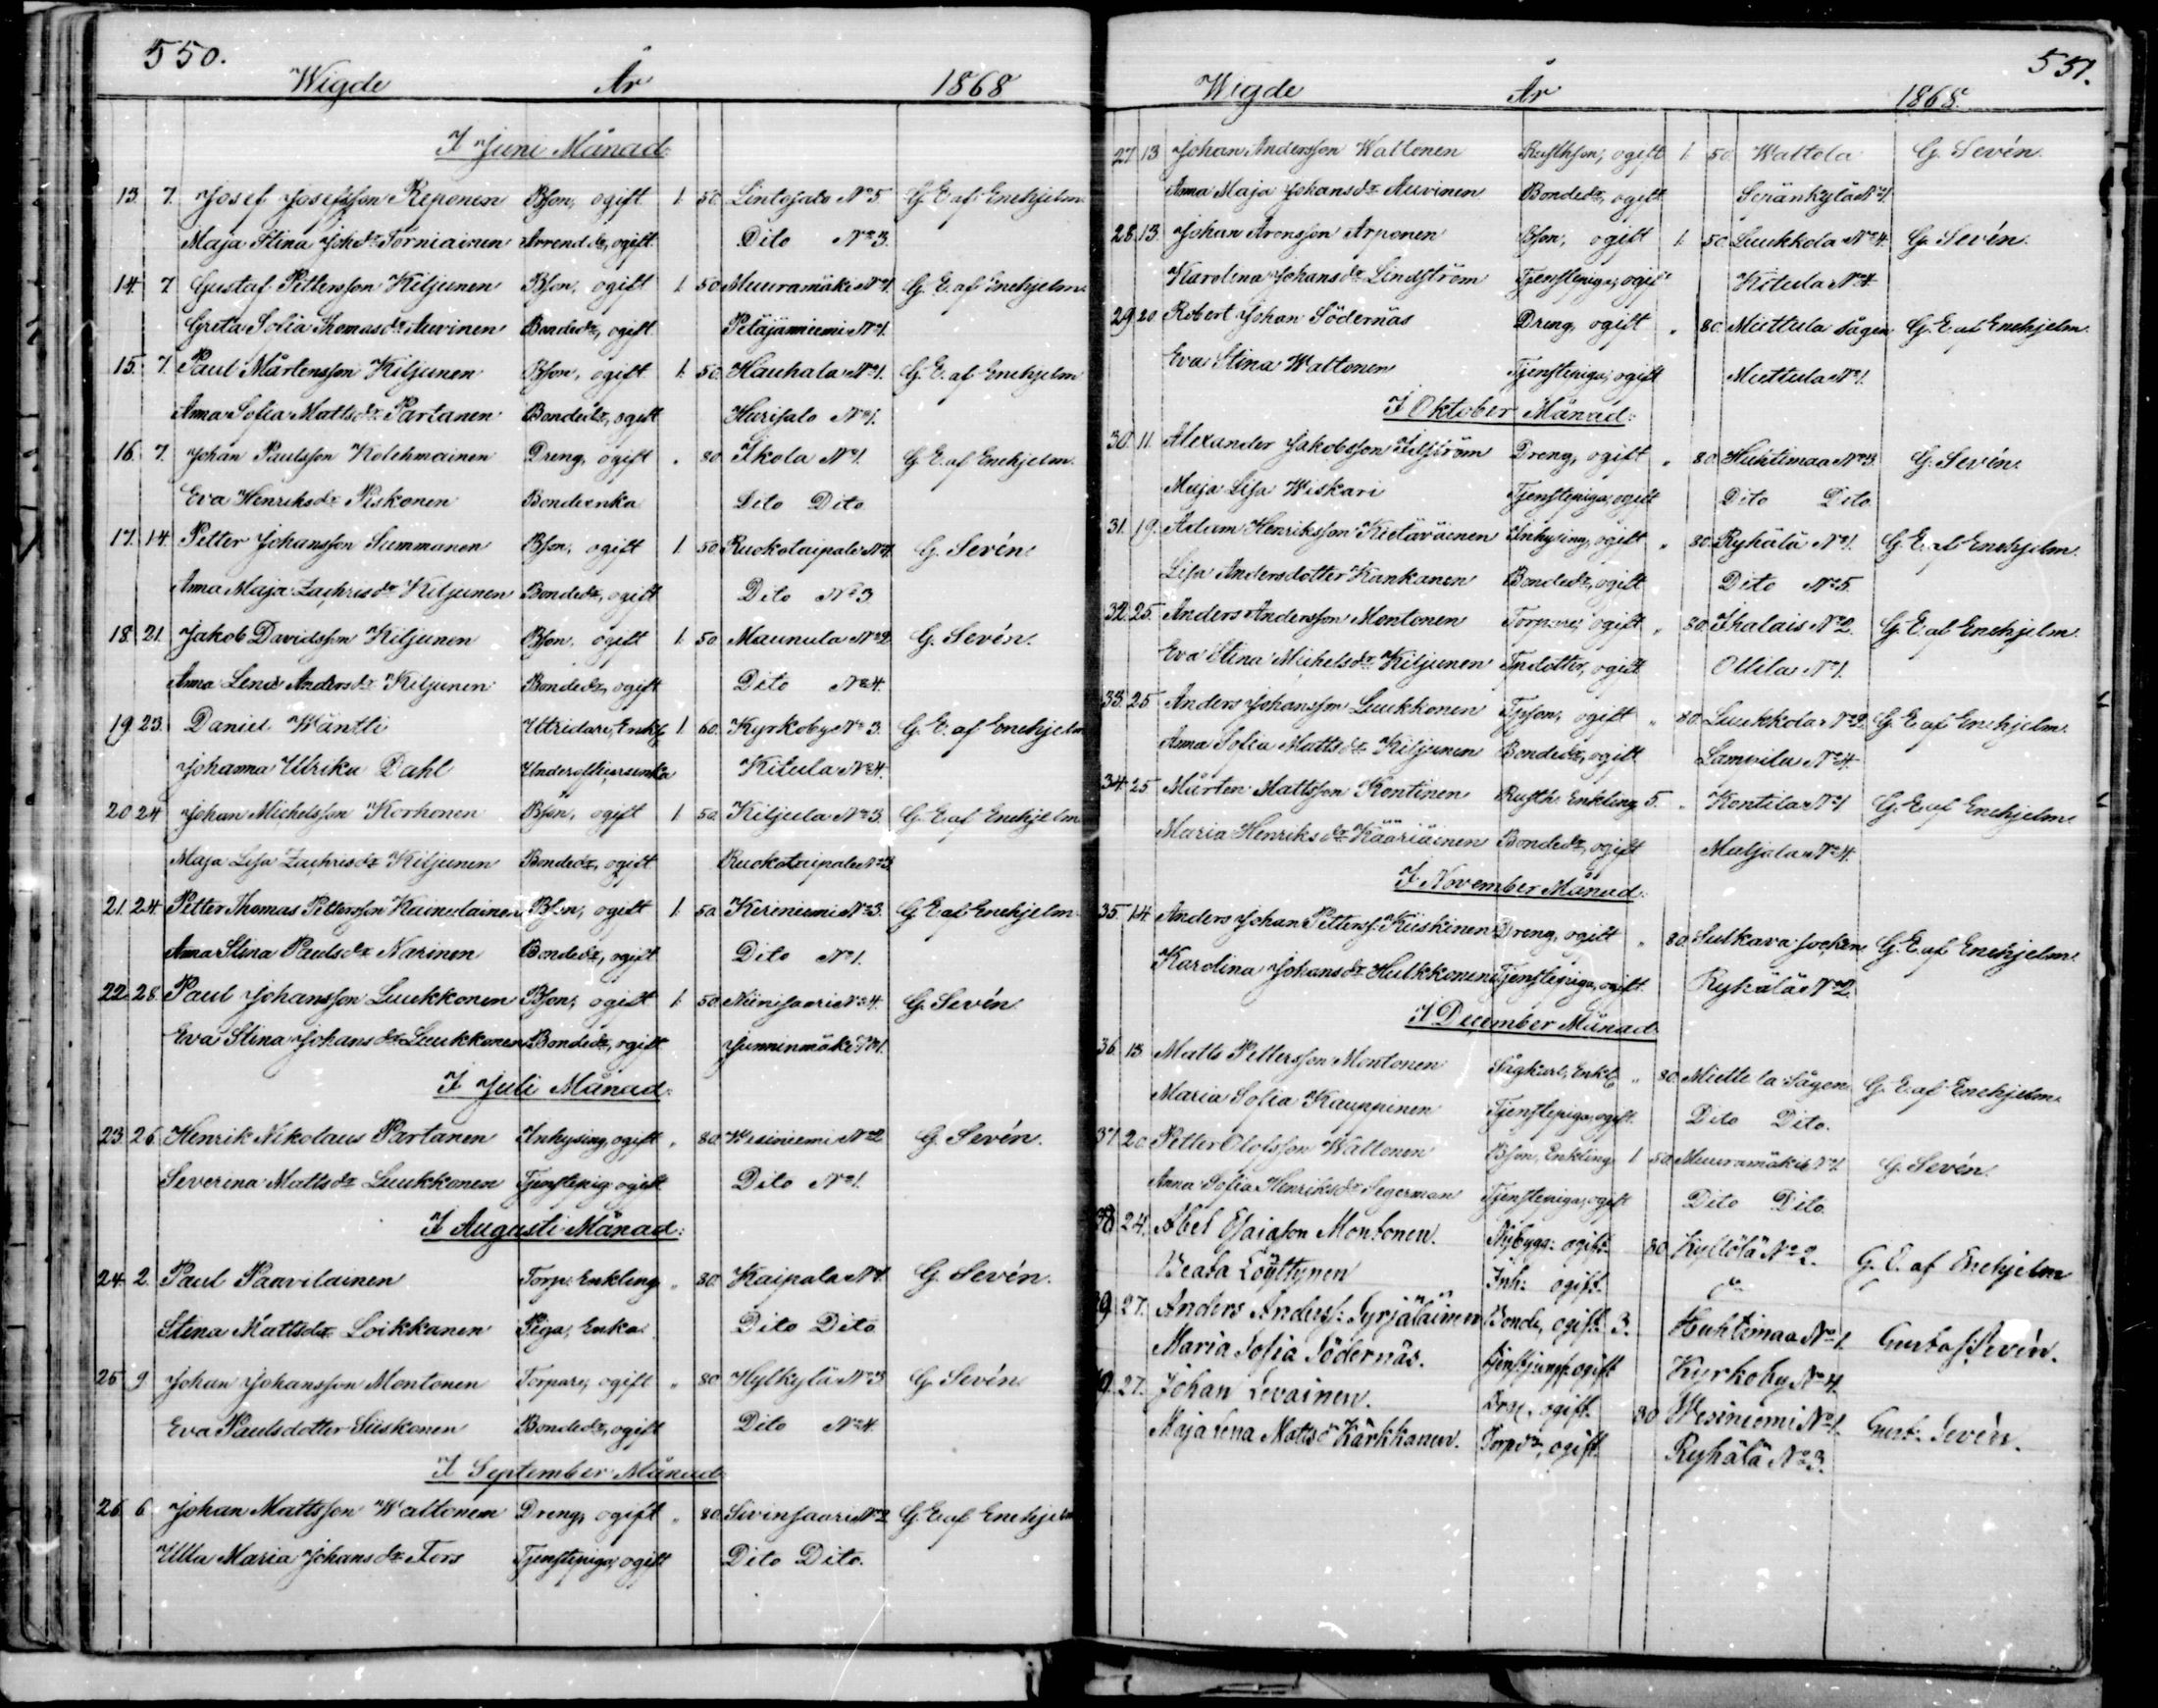 550.
Wigde År 1868
I Juni Månad:
13. 7. Josef Josefsson Reponen Bson, ogift 1. 50. Lintusalo No 5. G. E. af Enehjelm.
Maja Stina Johdr Torniainen Arrenddr, ogift. Dito No 3.
14. 7. Gustaf Pettersson Kiljunen Bson, ogift 1. 50. Muuramäki No 1. G. E. af Enehjelm.
Greta Sofia Thomasdr Auvinen Bondedr, ogift Petäjäniemi No 1.
15. 7. Paul Mårtensson Kiljunen Bson, ogift 1. 50. Hauhala No 1. G. E. af Enehjelm
Anna Sofia Mattsdr Partanen Bondedr, ogift Hurisalo No 1.
16. 7. Johan Paulsson Kolehmainen Dreng, ogift " 80. Ikola No 1. G. E. af Enehjelm.
Eva Henriksdr Piskonen Bondeenka Dito Dito
17. 14. Petter Johansson Summanen Bson, ogift 1. 50. Ruokotaipale No 4. G. Sevén.
Anna Maja Zachrisdr Kiljunen Bondedr, ogift Dito No 3.
18. 21. Jakob Davidsson Kiljunen Bson, ogift 1. 50. Maunula No 2 G. Sevén.
Anna Lena Andersdr Kiljunen Bondedr, ogift Dito No 4.
19. 23. Daniel Wäntti Utridare, Enkl. 1. 60. Kyrkoby No 3. G. E. af Enehjelm
Johanna Ulrika Dahl Underofficersenka Kitula No 4.
20. 24. Johan Michelsson Korhonen Bson, ogift 1 50. Kiljula No 3. G. E. af Enehjelm
Maja Lisa Zachrisdr Kiljunen Bondedr, ogift Ruokotaipale No 3.
21. 24. Petter Thomas Pettersson Kainulainen Bson, ogift 1. 50. Keriniemi No 3. G. E. af Enehjelm.
Anna Stina Paulsdr Narinen Bondedr, ogift Dito No 1.
22. 28. Paul Johansson Luukkonen Bson, ogift 1. 50. Niinisaari No 4. G. Sevén
Eva Stina Johansdr Luukkonen Bondedr, ogift Junninmäki No 1.
I Juli Månad:
23. 26. Henrik Nikolaus Partanen Inhysing, ogift " 80. Wesiniemi No 2 G. Sevén.
Severina Mattsdr Luukkonen Tjenstepig. ogift Dito No 1.
I Augusti Månad:
24. 2. Paul Paavilainen Torp. Enkling " 80. Kaipala No 4. G. Sevén.
Stina Mattsdr Loikkanen Piga, Enka. Dito Dito
25. 9. Johan Johansson Montonen Torpare, ogift " 80 Hylkylä No 3 G. Sevén.
Eva Paulsdotter Siiskonen Bondedr, ogift Dito No 4.
I September Månad.
26. 6. Johan Mattsson Waltonen Dreng, ogift " 80. Sivinsaari No 2 G. E. af Enehjelm
Ulla Maria Johansdr Fors Tjenstepiga, ogift Dito Dito.
551.
Wigde År 1868.
27. 13 Johan Andersson Waltonen Rusthson, ogift 1. 50. Waltola G. Sevén.
Anna Maja Johansdr Auvinen Bondedr, ogift No 1.
28. 13. Johan Aronsson Arponen Bson, ogift 1. 50. Luukkola No 4. G. Sevén.
Karolina Johansdr Lindström Tjenstepiga, ogift Kitula No 4
29. 20 Robert Johan Södernäs Dreng, ogift " 80. Miettula sågen G. E. af Enehjelm.
Eva Stina Waltonen Tjenstepiga, ogift Miettula No 1.
I Oktober Månad:
30. 11. Alexander Jakobsson Dreng, ogift " 80. Huhtimaa No 3. G. Sevén.
Maja Lisa Wiskari Tjenstepiga, ogift Dito Dito
31. 19. Adam Henriksson Kietäväinen Inhysing, ogift " 80. Ryhälä No 1. G. E. af Enehjelm.
Lisa Andersdotter Kankanen Bondedr, ogift Dito No 5.
32. 25. Anders Andersson Montonen Torpare, ogift " 80. Ihalais No 2. G. E. af Enehjelm.
Eva Stina Michelsdr Kiljunen Tpdotter, ogift Ollila No 1.
33. 25 Anders Johansson Luukkonen Tpson, ogift " 80. Luukkola No 2. G. E. af Enehjelm.
Anna Sofia Mattsdr Kiljunen Bondedr, ogift Lampila No 4.
34. 25 Mårten Mattsson Kontinen Rusth. Enkling 5. " Kontila No 1 G. E. af Enehjelm.
Maria Henriksdr Kääriäinen Bondedr, ogift Muljola No 4.
I November Månad.
35. 14 Anders Johan Petterss. Kiiskinen Dreng, ogift " 80. Sulkava socken G. E. af Enehjelm.
Karolina Johansdr Hulkkonen Tjenstepiga, ogift. Ryhälä No 2.
I December Månad.
36. 13 Matts Pettersson Montonen Sågkarl, Enkl. " 80. Miettula Sågen G. E. af Enehjelm.
Maria Sofia Kauppinen Tjenstepiga, ogift. Dito Dito.
37. 20. Petter Olofsson Waltonen Bson, Enkling 1 50 Muuramäki No 1 G. Sevén.
Anna Sofia Henriksdr Segerman Tjenstepiga, ogift Dito Dito
38. 24. Abel Esaiason Montonen. Nybygg: ogift 80. Kyllölä No 2. G. E. af Enehjelm
Beata Löyttynen Inh: ogift. do
39. 27. Anders Anderss: Syrjäläinen Bonde, ogift 3. Huhtimaa No 1. Gustaf Sevén.
Maria Sofia Södernäs. tjenstjungf. ogift Kyrkoby No 4.
27. Johan Levainen. Dräg, ogift. 80 Wesiniemi No 1. Gust. Sevén.
Maja Lena Mattsd Karkkanen. Torpdr, ogift. Ryhälä No 3.